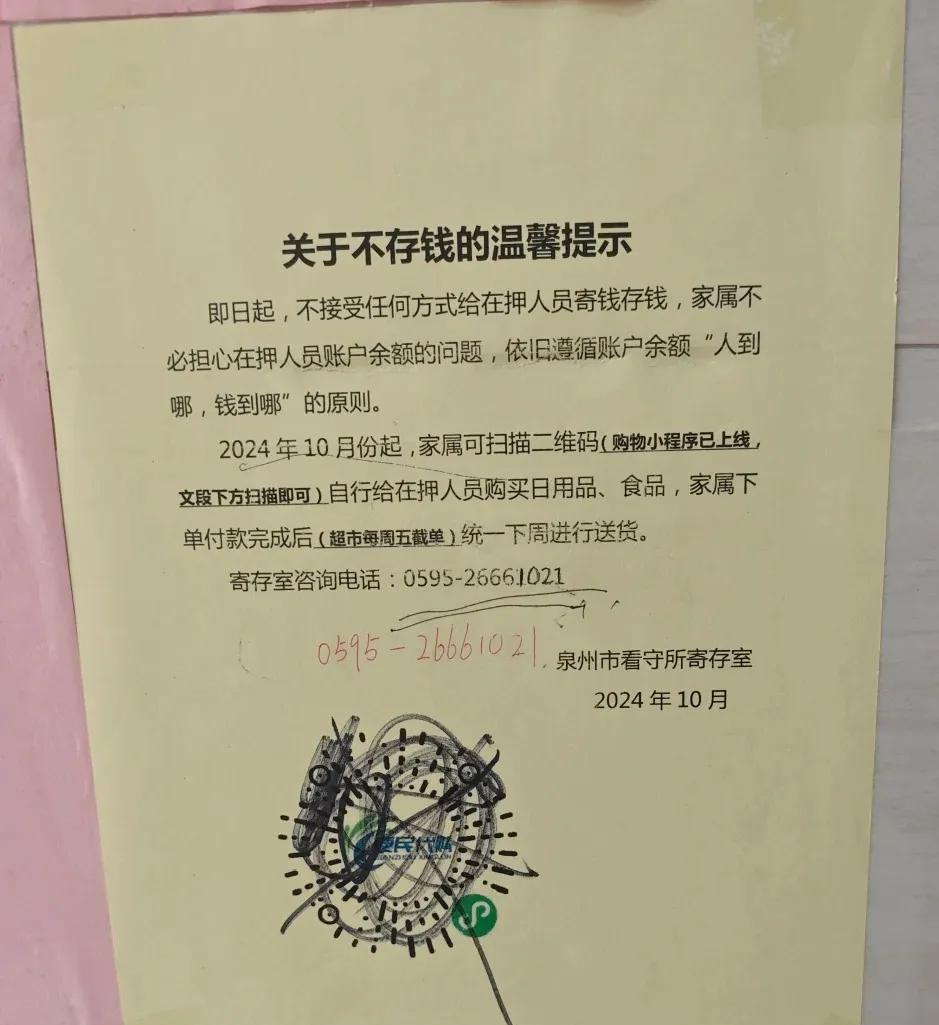 关于不存钱的温馨提示
即日起，不接受任何方式给在押人员寄钱存钱，家属不
必担心在押人员账户余额的问题，依旧遵循账户余额“人到
哪，钱到哪”的原则。
2024年10月份起，家属可扫描二维码（购物小程序已上线，
文段下方扫描即可）自行给在押人员购买日用品、食品，家属下
单付款完成后（超市每周五截单）统一下周进行送货。
寄存室咨询电话：0595-26661021
0595-26661021.
泉州市看守所寄存室
2024年10月
便民代购